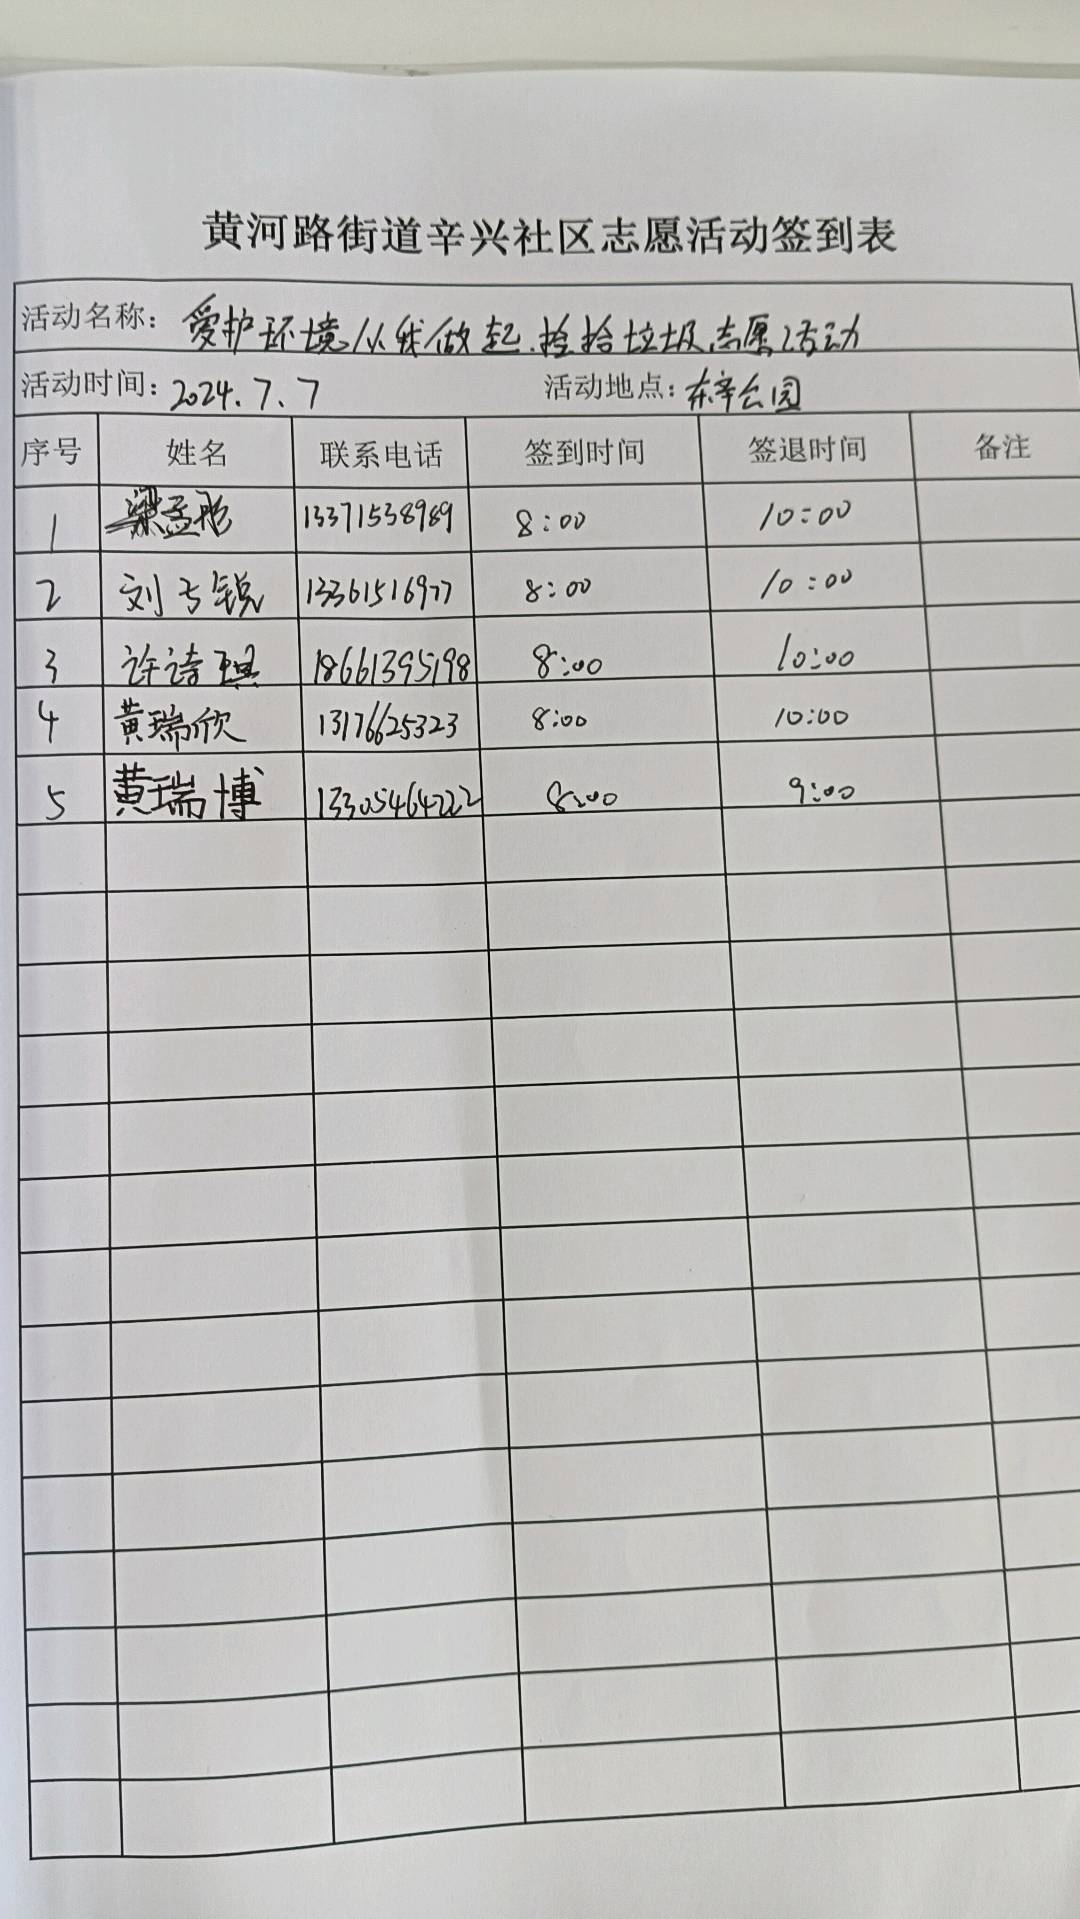 黄河路街道辛兴社区志愿活动签到表
活动名称: 爱护环境从我做起.捡拾垃圾志愿活动
活动时间: 2024.7.7 活动地点: 东辛公园
序号 姓名 联系电话 签到时间 签退时间 备注
1 梁孟彤 13371538989 8:00 10:00
2 刘与锐 13361516977 8:00 10:00
3 许诗琪 18661395198 8:00 10:00
4 黄瑞欣 13176625323 8:00 10:00
5 黄瑞博 13305464222 8:00 9:00